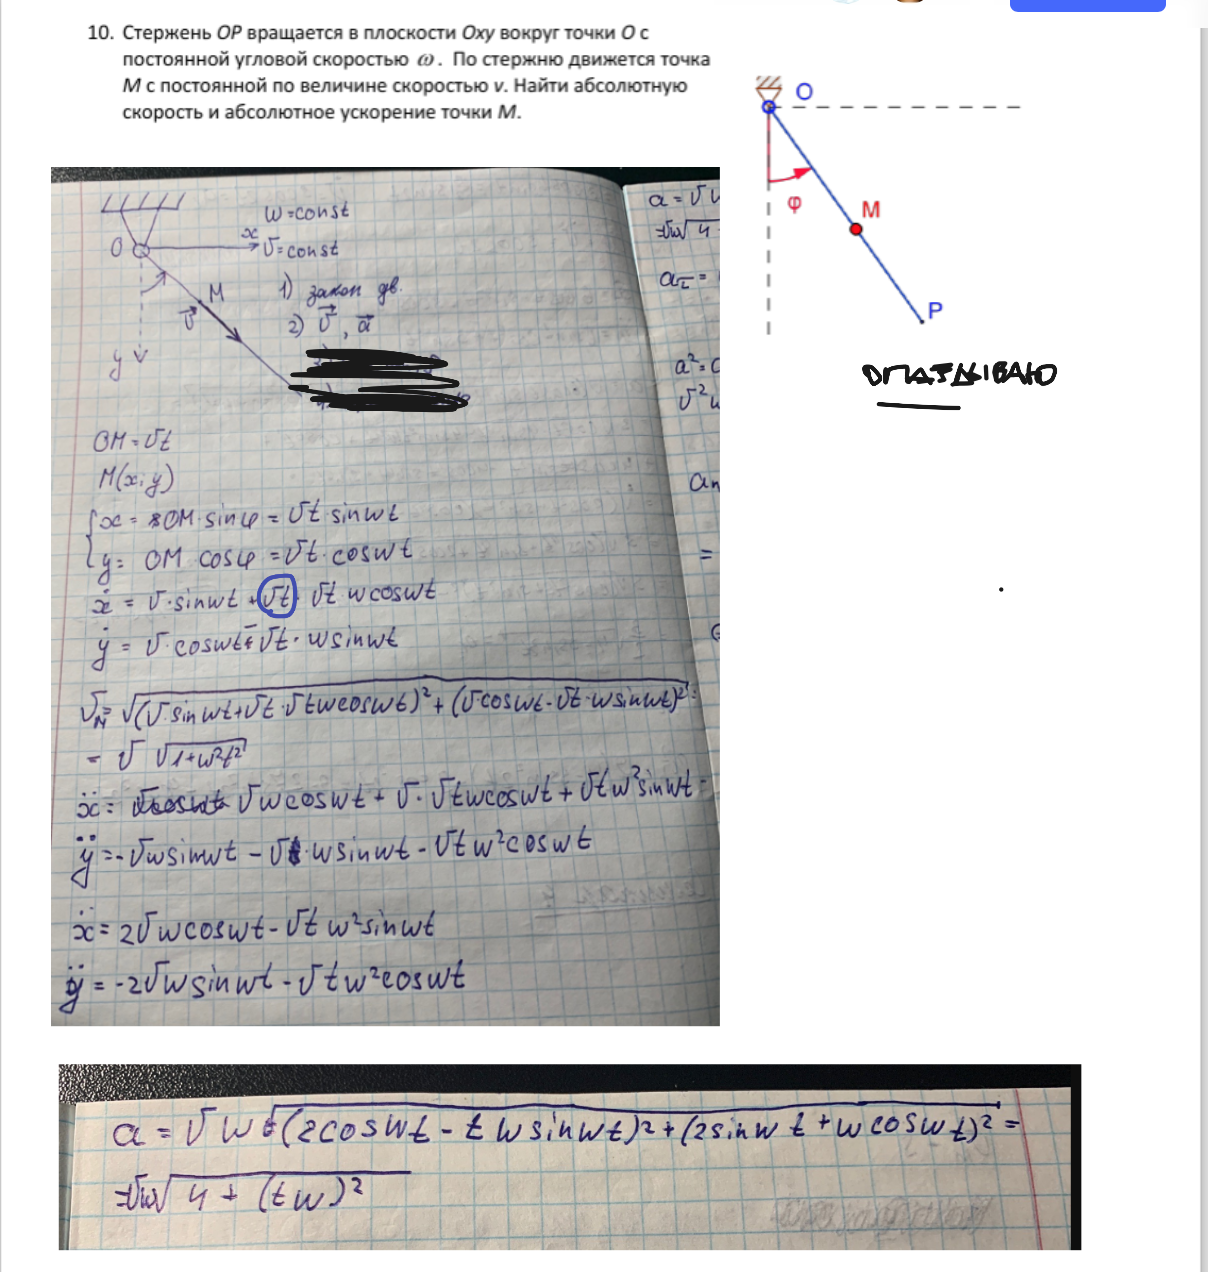 10. Стержень OP вращается в плоскости Oxy вокруг точки O с
постоянной угловой скоростью ω. По стержню движется точка
M с постоянной по величине скоростью v. Найти абсолютную
скорость и абсолютное ускорение точки M.
O
φ
M
P
опаздываю
ω=const
O x v=const
M 1) закон дв.
v 2) v, a
y
OM=vt
M(x;y)
x = OM·sinφ = vt·sinωt
y = OM·cosφ = vt·cosωt
ẋ = v·sinωt + vt· vt ωcosωt
ẏ = v·cosωt - vt·ωsinωt
v_M = √((v·sinωt+vt·vtωcosωt)²+(v·cosωt-vt·ωsinωt)²) =
= v √(1+ω²t²)
ẍ = vωcosωt + v·vtωcosωt + vtω²sinωt =
ÿ = -vωsinωt - v·ωsinωt - vtω²cosωt
ẍ = 2vωcosωt - vtω²sinωt
ÿ = -2vωsinωt - vtω²cosωt
a = v
=vω√4
a_τ =
a²=
v²ω
an
=
a = vω√((2cosωt - tωsinωt)2+(2sinωt+ωcosωt)2 =
=vω√(4 + (tω)²